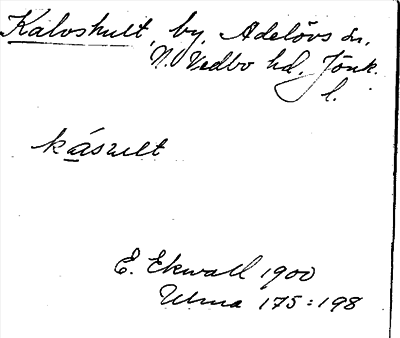 Kalvshult, by, Adelövs sn.
N. Vedbo hd. Jönk.
l.
kásult
E. Ekwall 1900
Ulma 175:198